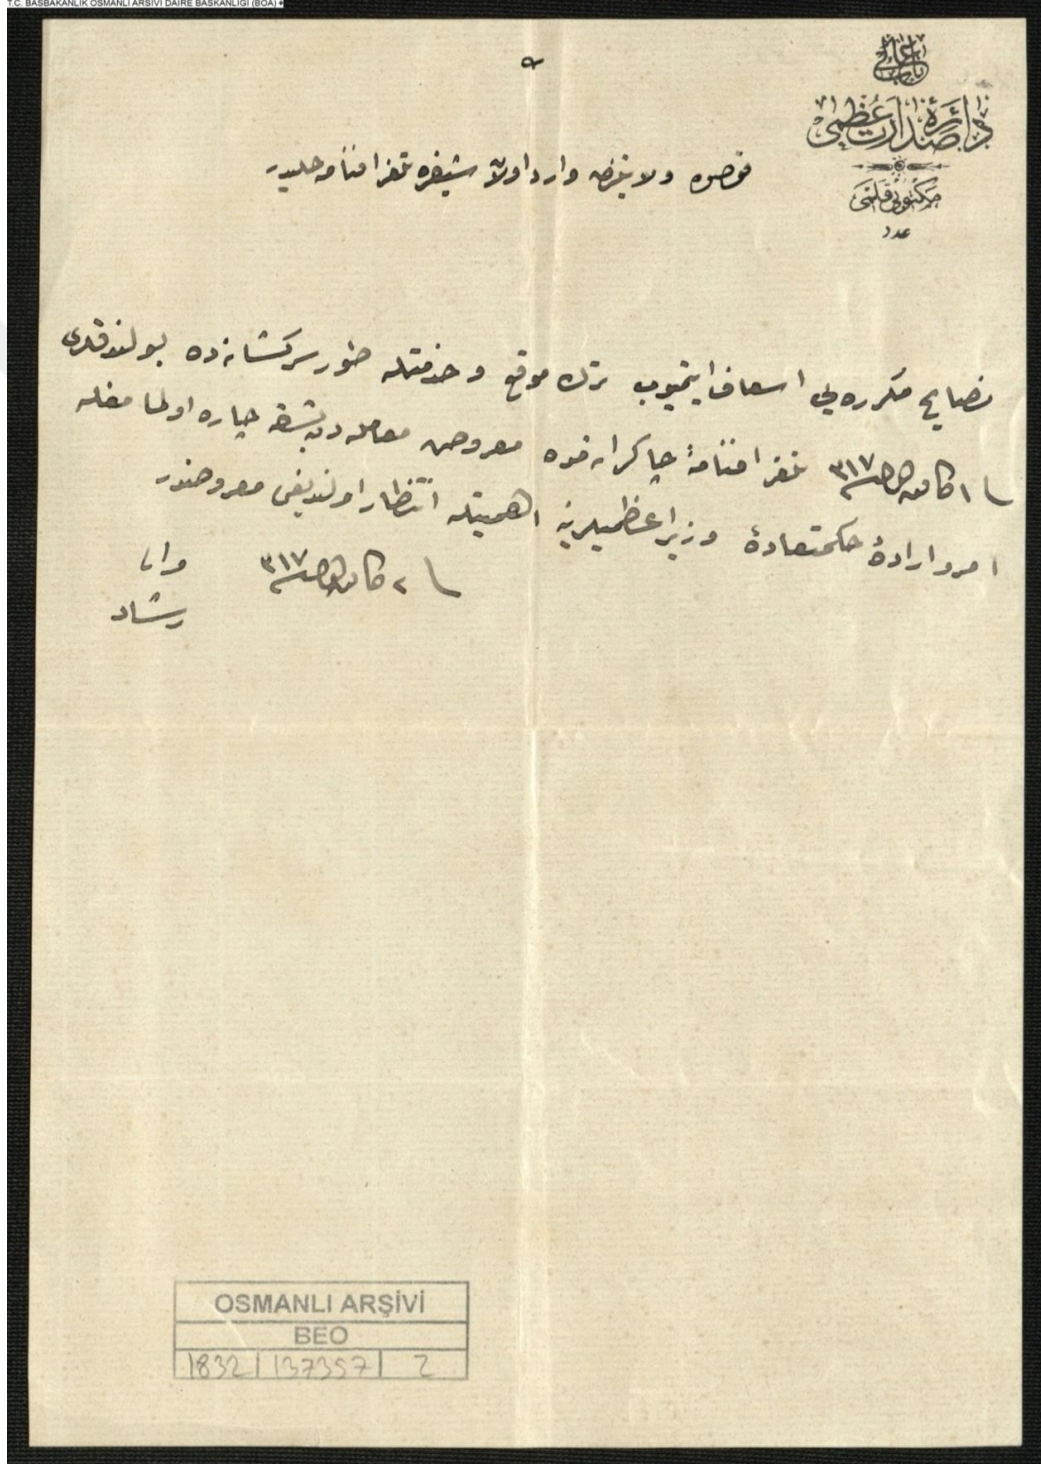 T.C. BAŞBAKANLIK OSMANLI ARŞİVİ DAİRE BAŞKANLIĞI (BOA)
باب عالی
دائرۀ صدارت عظمی
مکتوبی قلمی
عدد
قوصوه ولایتندن وارد اولان شیفره تلغرافنامه حلیدر
نصایح مکرره یی اسعاف ایتمیوب ترك موقع و خدمتله طور سرکشانه ده بولندقلری
فی ١ کانون ٣١٧ تلغرافنامۀ چاکرانه مده معروض معامله دن بشقه چاره اولمامغله
امر و ارادۀ حکمتعادۀ وزیر اعظمیلرینه اهمیتله انتظار اولندیغی معروضدر
فی ٢ کانون ٣١٧
والی
رشاد
OSMANLI ARŞİVİ
BEO
1832 137357 2